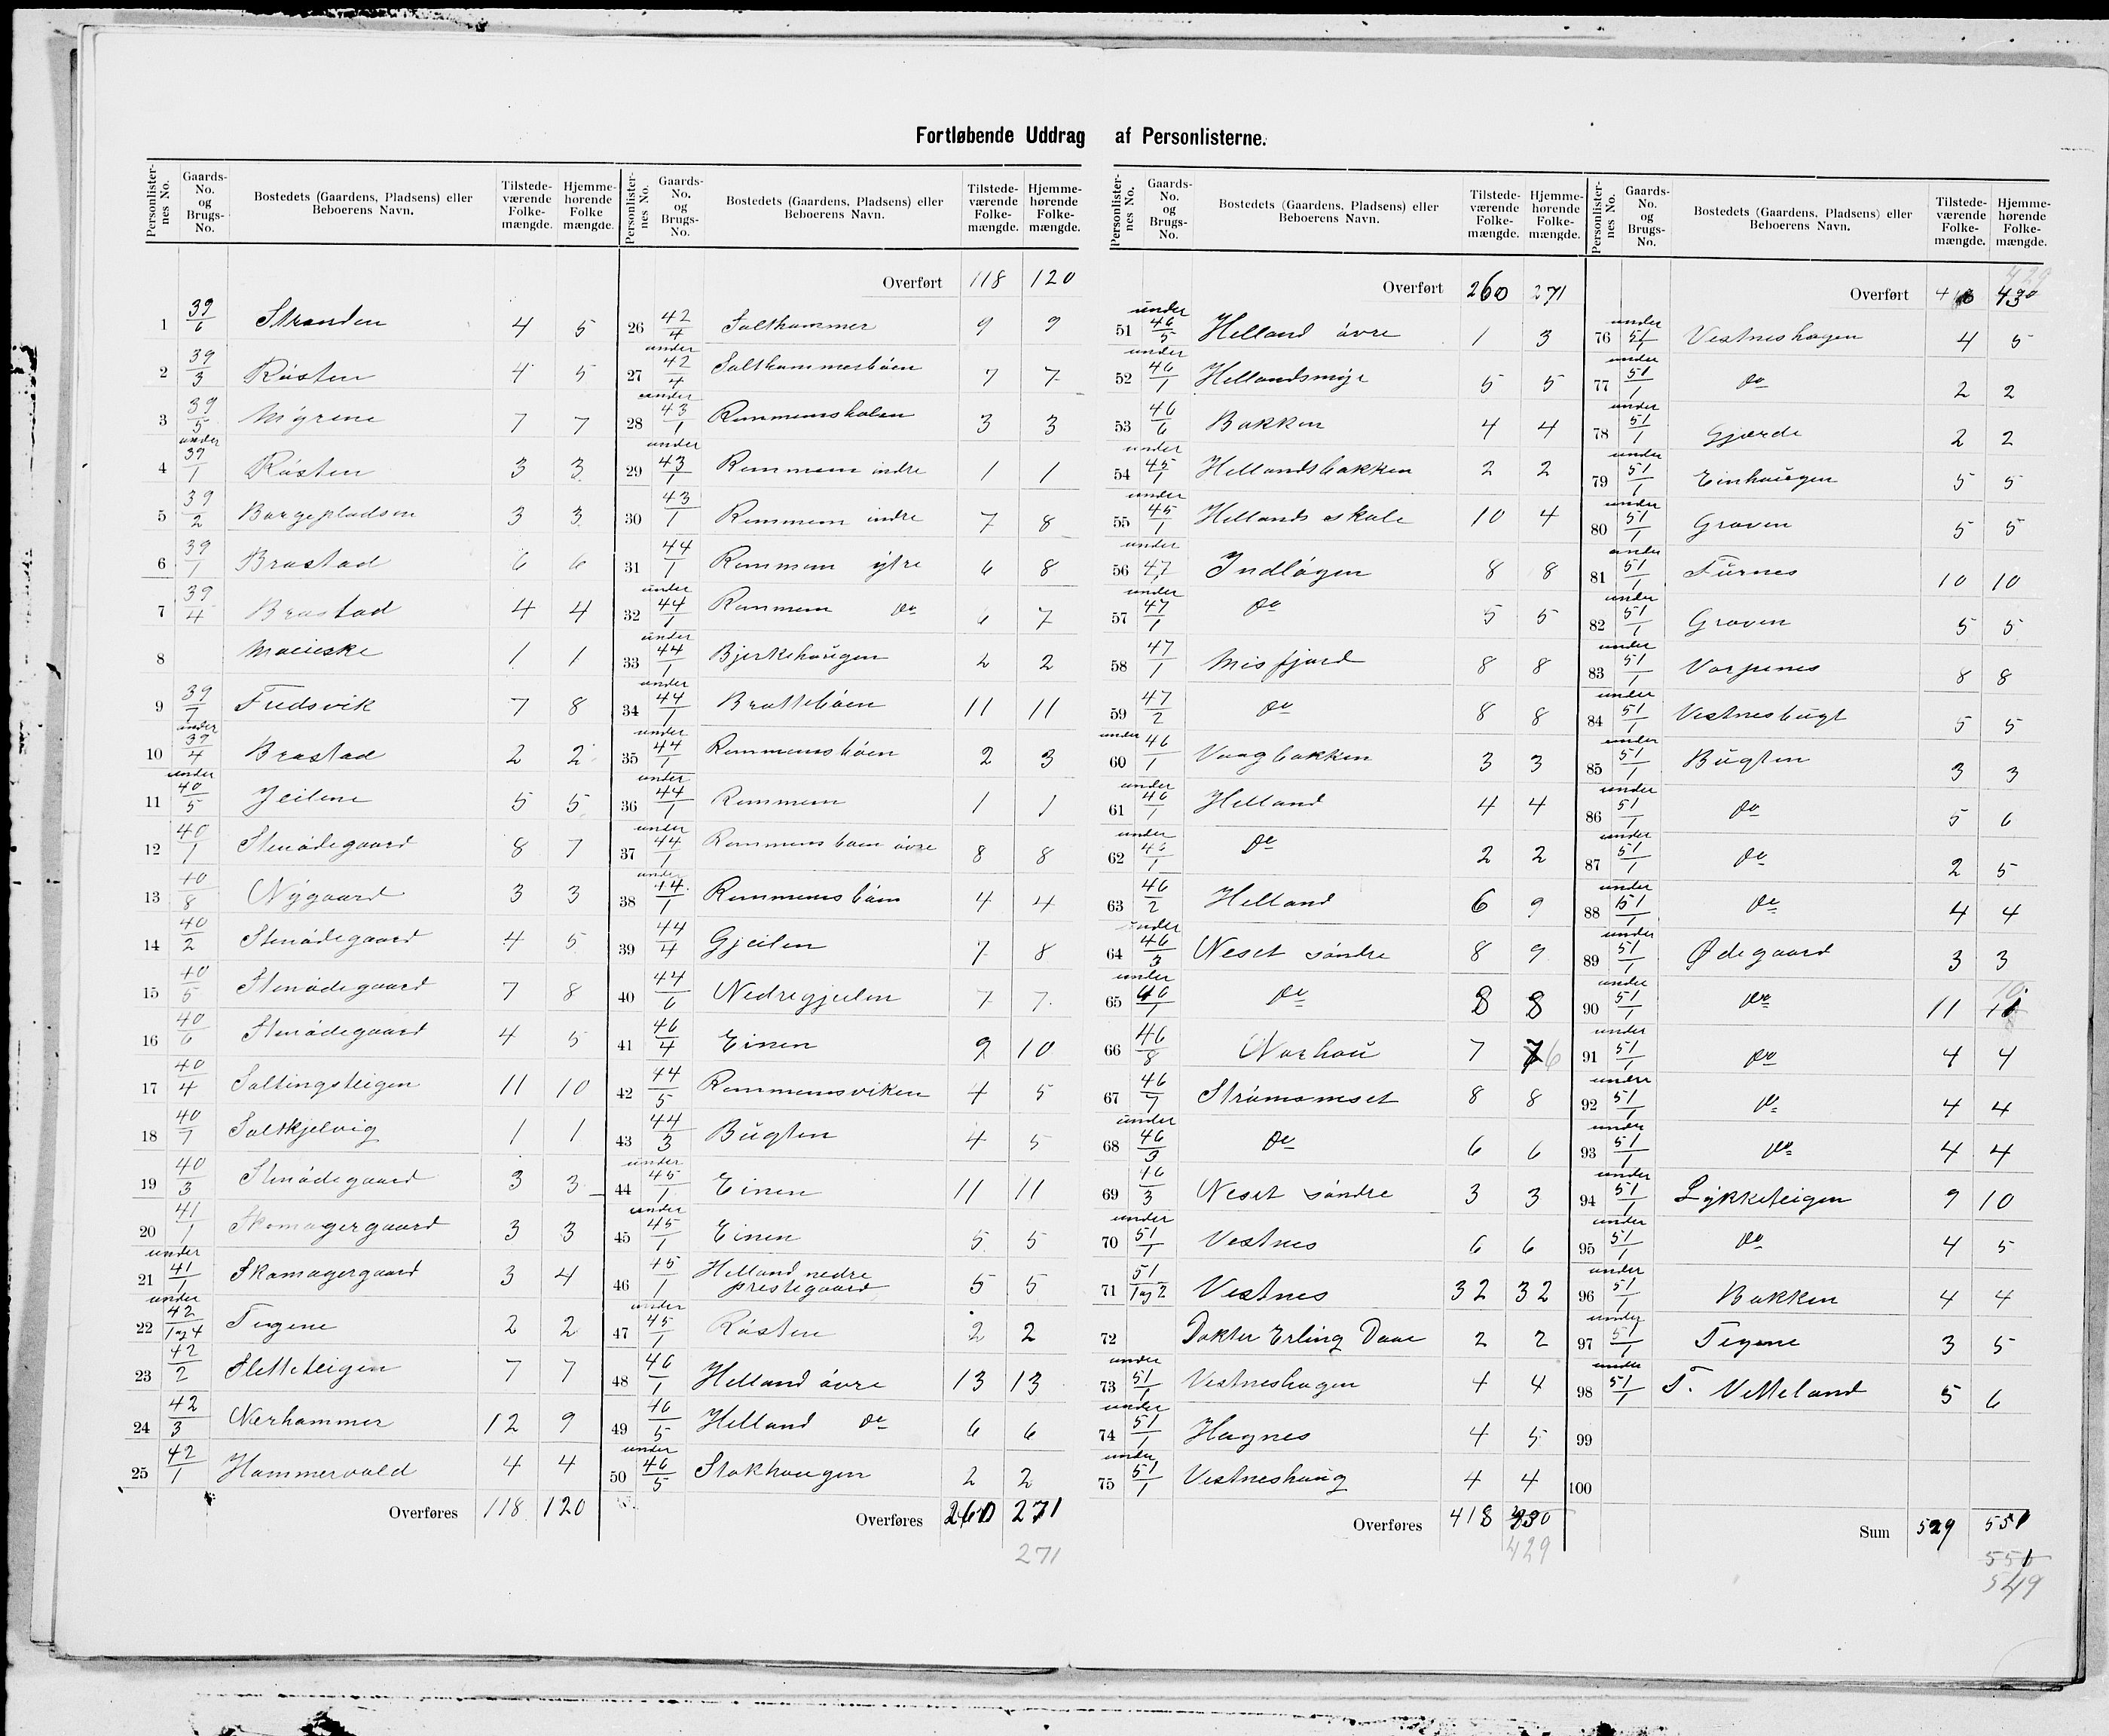 Fortløbende Uddrag af Personlisterne.
Personlister-nes No. | Gaards-No. og Brugs-No. | Bostedets (Gaardens, Pladsens) eller Beboerens Navn. | Tilstede-værende Folke-mængde. | Hjemme-hørende Folke-mængde.
1 39/6 Stranden 4 5
2 39/3 Røsten 4 5
3 39/5 Myrene 7 7
4 under 39/1 Røsten 3 3
5 39/2 Borgepladsen 3 3
6 39/1 Brastad 6 6
7 39/4 Brastad 4 4
8 1 1
9 39/7 Fredsvik 7 8
10 under 39/4 Brastad 2 2
11 under 40/5 Jeilene 5 5
12 40/1 Stenødegaard 8 7
13 40/8 Nygaard 3 3
14 40/2 Stenødegaard 4 5
15 40/5 Stenødegaard 7 8
16 40/6 Stenødegaard 4 5
17 40/4 Saltingsteigen 11 10
18 40/7 Saltkjelvig 1 1
19 40/3 Stenødegaard 3 3
20 41/1 Skomagergaard 3 3
21 under 41/1 Skomagergaard 3 4
22 under 42/1 og 4 Tegene 2 2
23 42/2 Sletteteigen 7 7
24 42/3 Nerhammer 12 9
25 42/1 Hammervold 4 4
Overføres 118 120
Personlister-nes No. | Gaards-No. og Brugs-No. | Bostedets (Gaardens, Pladsens) eller Beboerens Navn. | Tilstede-værende Folke-mængde. | Hjemme-hørende Folke-mængde.
Overført 118 120
26 42/4 Salthammer 9 9
27 under 42/4 Salthammerbøen 7 7
28 under 43/1 Remmemsholen 3 3
29 under 43/1 Remmem indre 1 1
30 43/1 Remmem indre 7 8
31 44/1 Remmem ytre 6 8
32 under 44/1 Remmem do 6 7
33 under 44/1 Bjerkehaugen 2 2
34 under 44/1 Brattebøen 11 11
35 under 44/1 Remmemsbøen 2 3
36 under 44/1 Remmem 1 1
37 under 44/1 Remmemsbøen øvre 8 8
38 under 44/1 Remmemsbøen 4 4
39 44/4 Gjeilen 7 8
40 44/6 Nedregjeilen 7 7
41 46/4 Einen 9 10
42 44/5 Remmemsviken 4 5
43 44/3 Bugten 4 5
44 under 45/1 Einen 11 11
45 under 45/1 Einen 5 5
46 45/1 Helland nedre
prestegaard 5 5
47 under 45/1 Røsten 2 2
48 46/1 Helland øvre 13 13
49 46/5 Helland do 6 6
50 under 46/5 Stokhaugen 2 2
Overføres 260 271
271
Personlister-nes No. | Gaards-No. og Brugs-No. | Bostedets (Gaardens, Pladsens) eller Beboerens Navn. | Tilstede-værende Folke-mængde. | Hjemme-hørende Folke-mængde.
Overført 260 271
51 under 46/5 Helland øvre 1 3
52 under 46/1 Hellandsmyr 5 5
53 46/6 Bakken 4 4
54 under 45/1 Hellandsbakken 2 2
55 under 45/1 Hellands skole 10 4
56 under 47/1 Indløgen 8 8
57 under 47/1 do 5 5
58 47/1 Misfjord 8 8
59 47/2 do 8 8
60 under 46/1 Vaagbakken 3 3
61 under 46/1 Helland 4 4
62 under do 2 2
63 46/2 Helland 6 9
64 under 46/3 Neset søndre 8 9
65 under 46/1 do 8 8
66 46/8 Norhau 7 7 6
67 46/7 Strømsneset 8 8
68 under 46/3 do 6 6
69 46/3 Neset søndre 3 3
70 under 51/1 Vestnes 6 6
71 51/1 og 2 Vestnes 32 32
72 Doktor Erling Daae 2 2
73 under 51/1 Vestneshagen 4 4
74 under 51/1 Hagnes 4 5
75 under 51/1 Vestneshaug 4 4
Overføres 418 430
429
Personlister-nes No. | Gaards-No. og Brugs-No. | Bostedets (Gaardens, Pladsens) eller Beboerens Navn. | Tilstede-værende Folke-mængde. | Hjemme-hørende Folke-mængde.
429
Overført 418 430
76 under 51/1 Vestneshagen 4 5
77 under 51/1 do 2 2
78 under 51/1 Gjærde 2 2
79 under 51/1 Einhaugen 5 5
80 under 51/1 Graven 5 5
81 under 51/1 Furnes 10 10
82 under 51/1 Graven 5 5
83 under 51/1 Vorpenes 8 8
84 under 51/1 Vestnesbugt 5 5
85 under 51/1 Bugten 3 3
86 under 51/1 do 5 6
87 under 51/1 do 2 5
88 under 51/1 do 4 4
89 under 51/1 Ødegaard 3 3
90 under 51/1 do 11 11 10
91 under 51/1 do 4 4
92 under 51/1 do 4 4
93 under 51/1 do 4 4
94 under 51/1 Lykketeigen 9 10
95 under 51/1 do 4 5
96 under 51/1 Bakken 4 4
97 under 51/1 Tegene 3 5
98 under 51/1 T. Vetteland 5 6
99
100
Sum 529 551
550
549